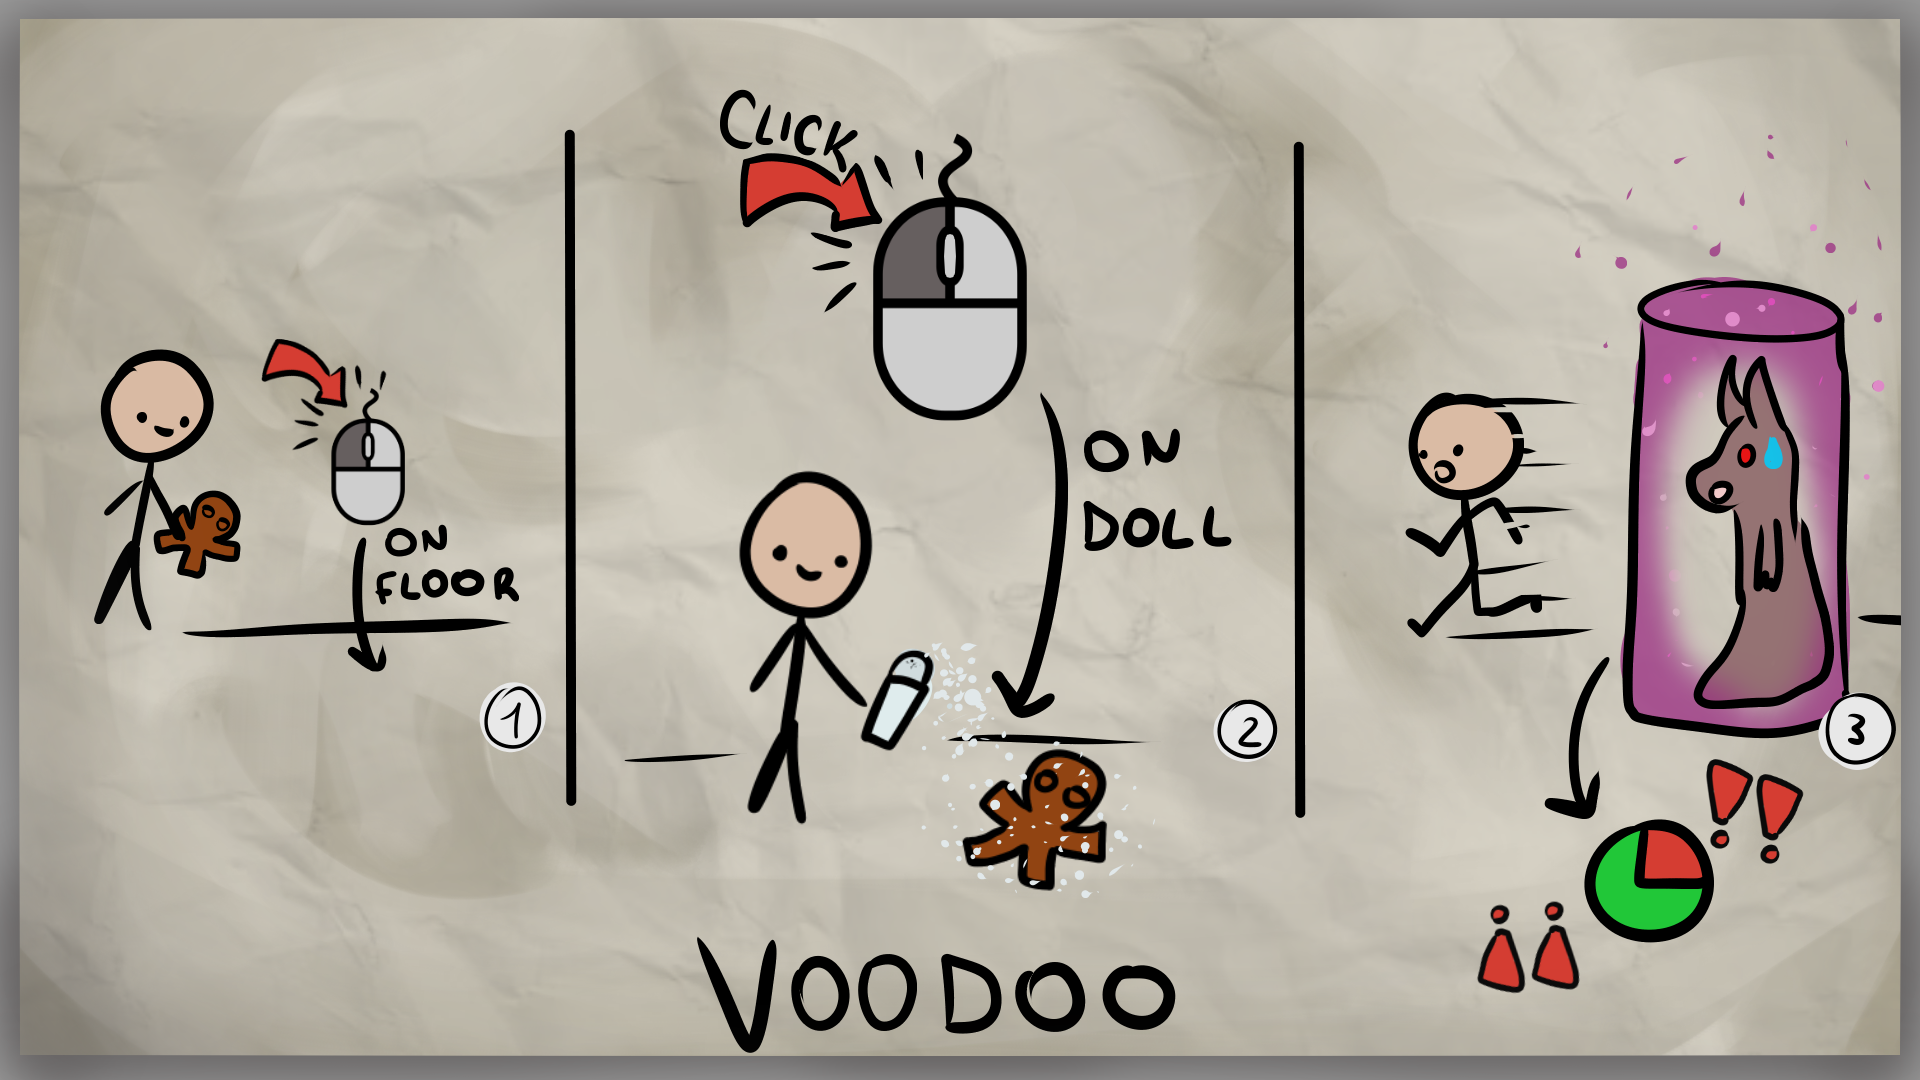 ON
FLOOR
1
CLICK
ON
DOLL
2
3
VOODOO